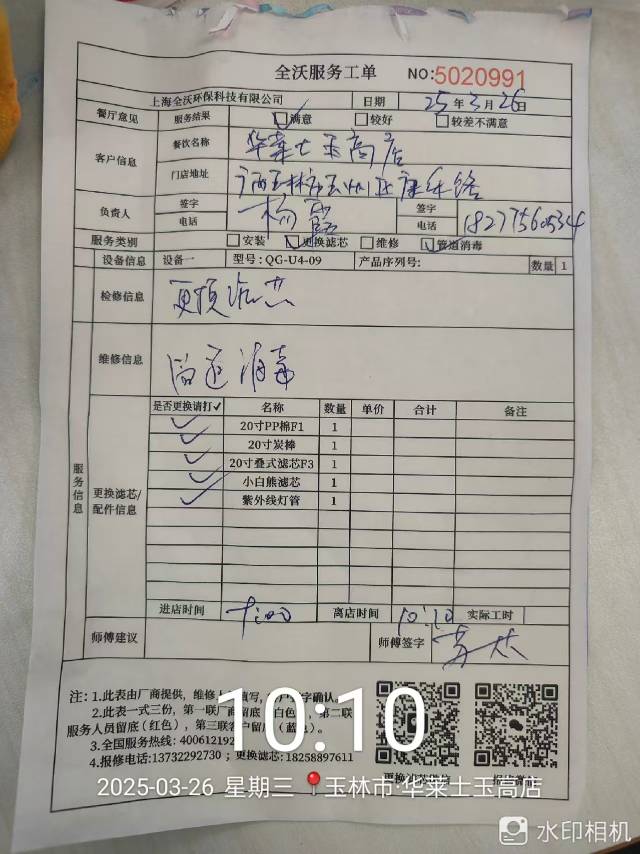 全沃服务工单 NO:5020991
上海全沃环保科技有限公司 日期 25年3月26日
餐厅意见 服务结果 满意 较好 较差不满意
客户信息 餐饮名称 华莱士玉高店
门店地址 广西玉林市玉州区
负责人 签字 杨 签字
电话 电话 18277560534
服务类别 安装 更换滤芯 维修 管道消毒
设备信息 设备一 型号:QG-U4-09 产品序列号: 数量 1
检修信息 更换滤芯
维修信息 管道消毒
服务信息
更换滤芯/配件信息
是否更换请打✓ 名称 数量 单价 合计 备注
✓ 20寸PP棉F1 1
✓ 20寸炭棒 1
✓ 20寸叠式滤芯F3 1
✓ 小白熊滤芯 1
✓ 紫外线灯管 1
进店时间 离店时间 10:10 实际工时
师傅建议 师傅签字
注:1.此表由厂商提供,维修 填写, 字确认。
2.此表一式三份,第一联厂商留底 白色 ,第二联
服务人员留底(红色),第三联客户留底(蓝色)。
3.全国服务热线:400612192
4.报修电话:13732292730;更换滤芯:18258897611
10:10
2025-03-26 星期三 玉林市·华莱士玉高店
水印相机